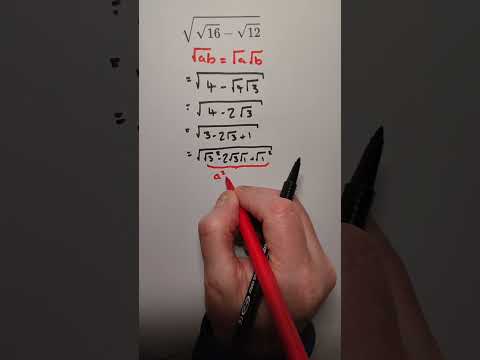 √(√16 − √12)
√ab = √a√b
= √(4 − √4√3)
= √(4 − 2√3)
= √(3 − 2√3 + 1)
= √(√3² − 2√3√1 + √1²)
a²